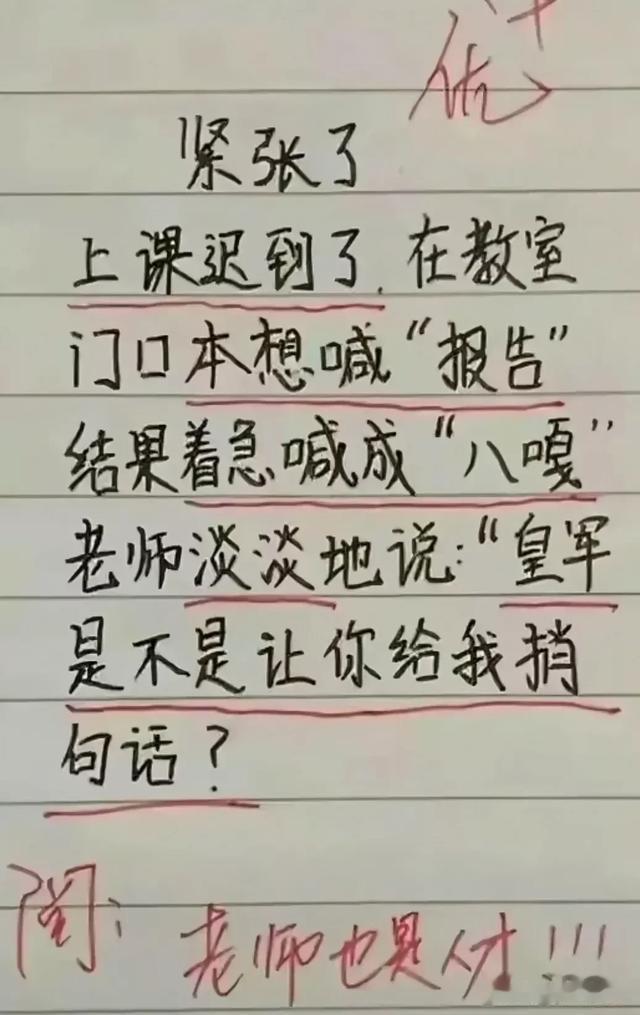 优+
紧张了
上课迟到了.在教室
门口本想喊“报告”
结果着急喊成“八嘎”
老师淡淡地说:“皇军
是不是让你给我捎
句话?
阅:老师也是人才!!!